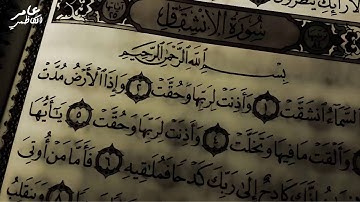 عامر
سُورَةُ الانشِقَاقِ
بِسْمِ ٱللَّهِ ٱلرَّحْمَٰنِ ٱلرَّحِيمِ
ٱلسَّمَآءُ ٱنشَقَّتْ ١ وَأَذِنَتْ لِرَبِّهَا وَحُقَّتْ ٢ وَإِذَا ٱلْأَرْضُ مُدَّتْ
وَأَلْقَتْ مَا فِيهَا وَتَخَلَّتْ ٤ وَأَذِنَتْ لِرَبِّهَا وَحُقَّتْ ٥ يَٰٓأَيُّهَا
كَادِحٌ إِلَىٰ رَبِّكَ كَدْحًا فَمُلَٰقِيهِ ٦ فَأَمَّا مَنْ أُوتِيَ
٨ وَيَنقَلِبُ